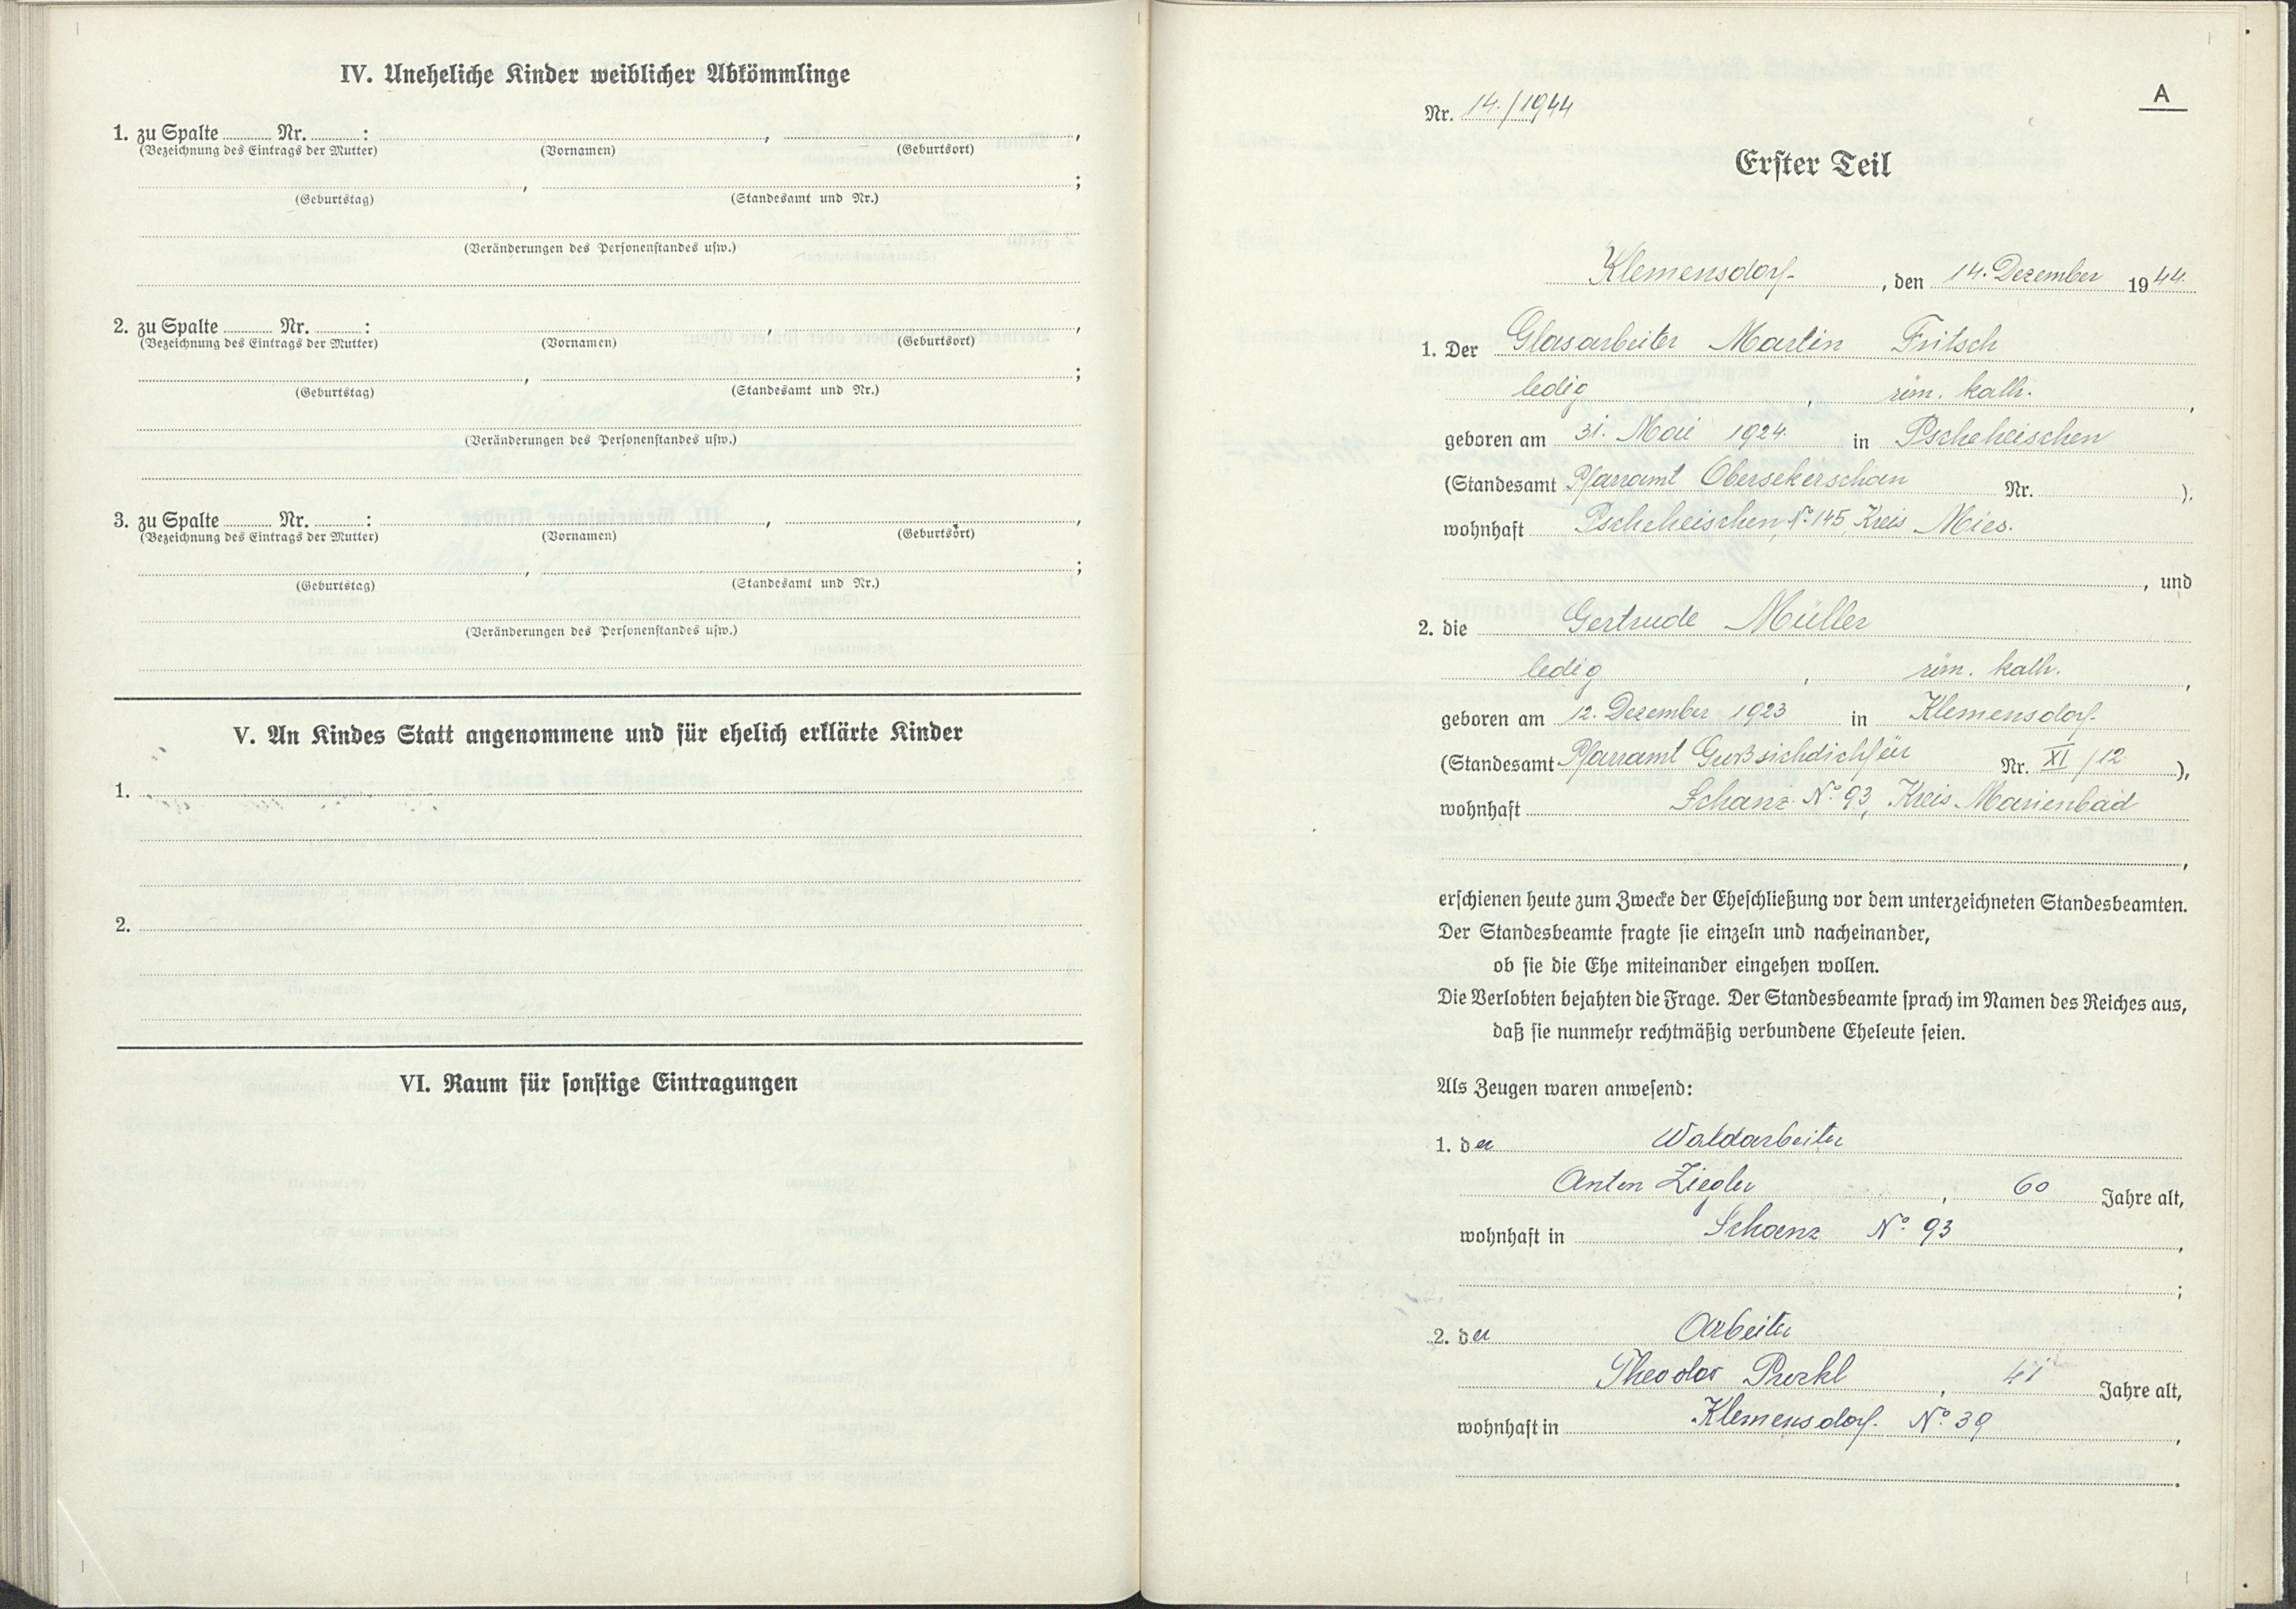 IV. Uneheliche Kinder weiblicher Abkömmlinge
1. zu Spalte Nr. : , ,
(Bezeichnung des Eintrags der Mutter) (Vornamen) (Geburtsort)
, ;
(Geburtstag) (Standesamt und Nr.)
(Veränderungen des Personenstandes usw.)
2. zu Spalte Nr. : , ,
(Bezeichnung des Eintrags der Mutter) (Vornamen) (Geburtsort)
, ;
(Geburtstag) (Standesamt und Nr.)
(Veränderungen des Personenstandes usw.)
3. zu Spalte Nr. : , ,
(Bezeichnung des Eintrags der Mutter) (Vornamen) (Geburtsort)
, ;
(Geburtstag) (Standesamt und Nr.)
(Veränderungen des Personenstandes usw.)
V. An Kindes Statt angenommene und für ehelich erklärte Kinder
1.
2.
VI. Raum für sonstige Eintragungen
A
Nr. 14./1944
Erster Teil
Klemensdorf , den 14. Dezember 1944.
1. Der Glasarbeiter Martin Fritsch
ledig , röm. kath. ,
geboren am 31. Mai 1924 in Pscheheischen
(Standesamt Pfarramt Obersekerschan Nr. ),
wohnhaft Pscheheischen, No. 145, Kreis Mies.
, und
2. die Gertrude Müller
ledig , röm. kath. ,
geboren am 12. Dezember 1923 in Klemensdorf
(Standesamt Pfarramt Großsichdichfür Nr. XI/12 ),
wohnhaft Schanz No. 93, Kreis Marienbad
,
erschienen heute zum Zwecke der Eheschließung vor dem unterzeichneten Standesbeamten.
Der Standesbeamte fragte sie einzeln und nacheinander,
ob sie die Ehe miteinander eingehen wollen.
Die Verlobten bejahten die Frage. Der Standesbeamte sprach im Namen des Reiches aus,
daß sie nunmehr rechtmäßig verbundene Eheleute seien.
Als Zeugen waren anwesend:
1. der Waldarbeiter
Anton Ziegler , 60 Jahre alt,
wohnhaft in Schanz No. 93 ,
;
2. der Arbeiter
Theodor , 41 Jahre alt,
wohnhaft in Klemensdorf No. 39 ,
.